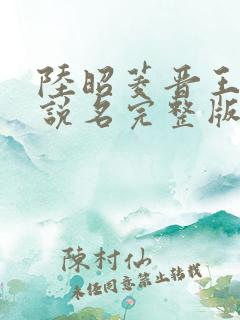 陸昭菱晋王
說名完整版
陳村仙
未任同意禁止转载